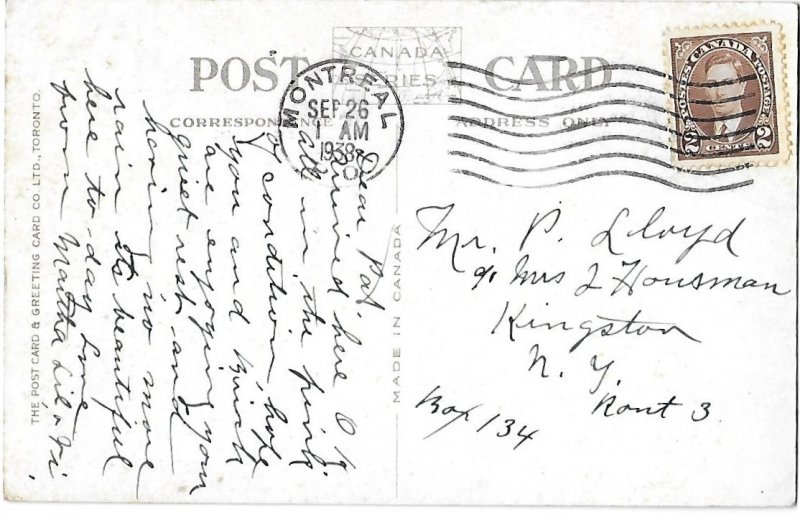 POST CARD
CANADA
SERIES
CORRESPONDENCE
ADDRESS ONLY
MONTREAL
SEP 26
1 AM
1938
P.Q.
POSTES CANADA POSTAGE
2 CENTS 2
Dear Pat
Arrived here O K
all in the pink
of condition hope
you and Birch
are enjoying your
quiet rest and
havin no more
rain its beautiful
here to-day Love
from Martha Lil &
MADE IN CANADA
THE POST CARD & GREETING CARD CO. LTD., TORONTO.
Mr. P. Lloyd
c/o Mrs J Housman
Kingston
N. Y.
Rout 3
Box 134